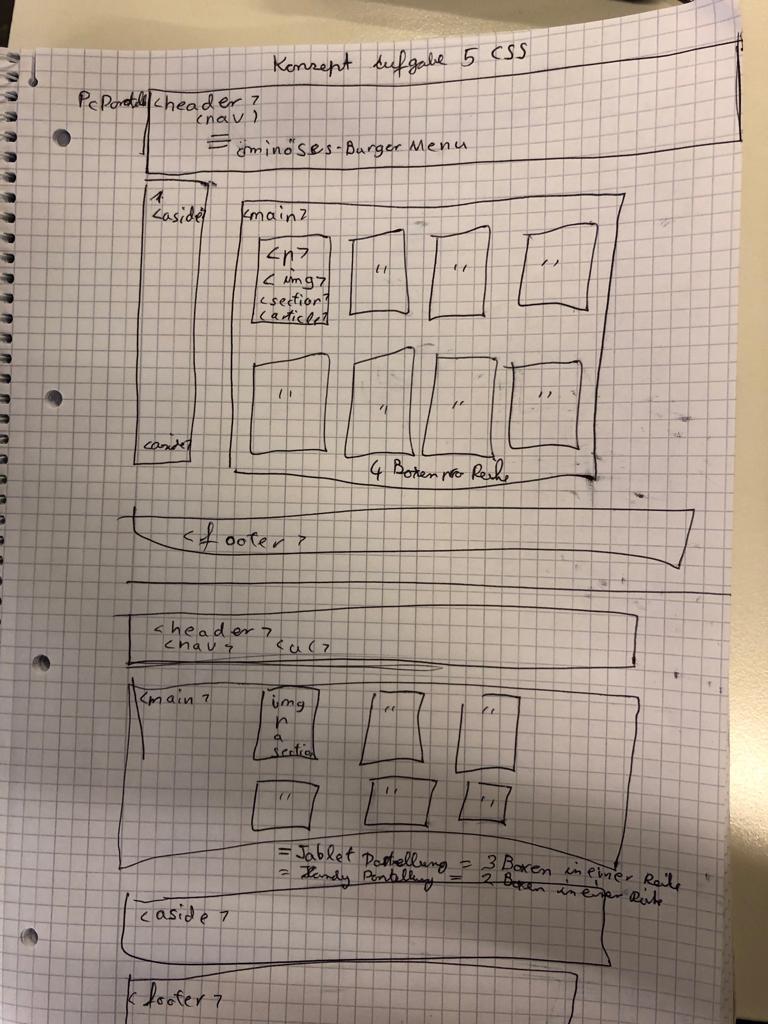 Konzept Aufgabe 5 CSS
<header>
<nav>
öminöses-Burger Menu
<aside>
<main>
<p>
<img>
<section>
<article>
"
"
"
"
"
"
"
<aside>
4 Boxen pro Reihe
<footer>
<header>
<nav> <ul>
<main>
img
p
a
section
"
"
"
"
"
= Tablet Darstellung = 3 Boxen in einer Reihe
= Handy Darstellung = 2 Boxen in einer Reihe
<aside>
<footer>